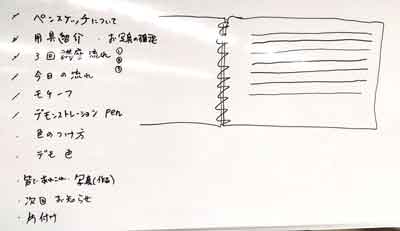 ペンスケッチについて
用具紹介 ・ お写真の確認
3回講座 流れ ① ② ③
今日の流れ
モチーフ
デモンストレーション pen
色のつけ方
デモ 色
写真(作品)
次回 お知らせ
片付け